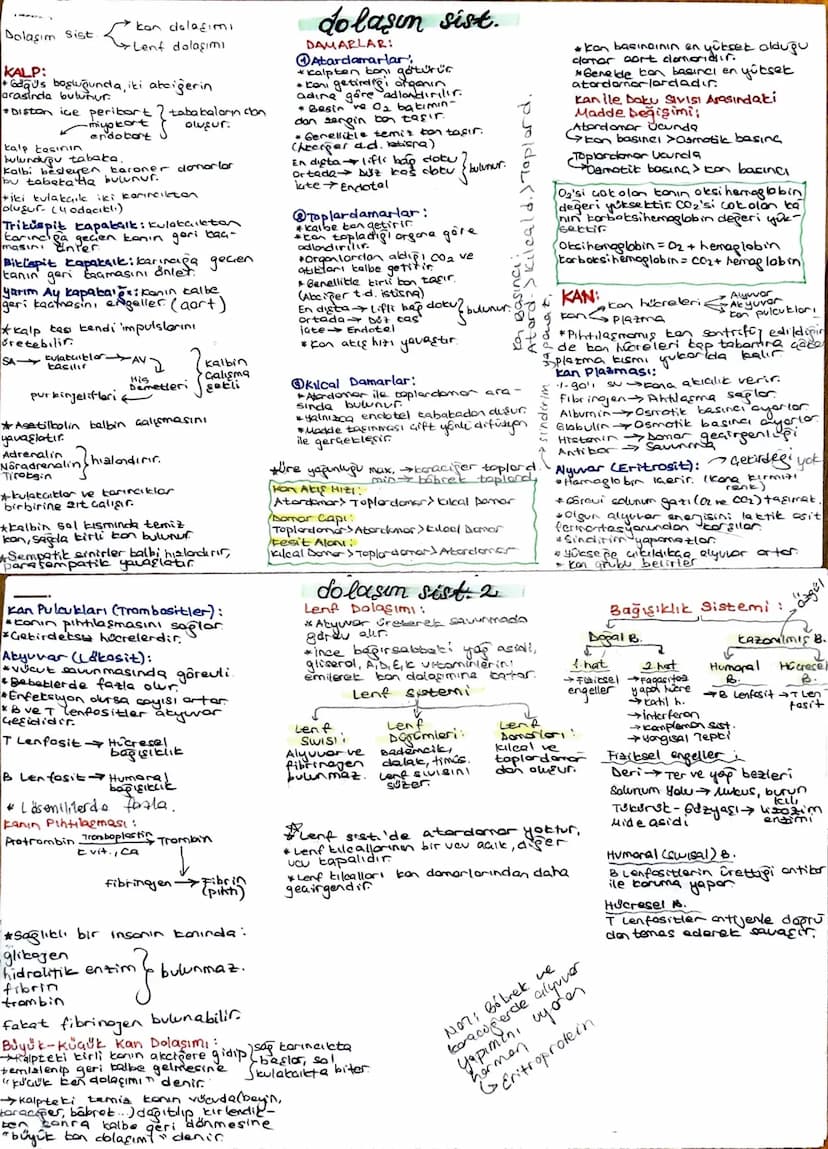 dolaşım sist.
Dolaşım Sist → Kan dolaşımı
→ Lenf dolaşımı
KALP:
*Göğüs boşluğunda, iki akciğerin
arasında bulunur.
*Dıştan içe perikart
miyokart
endokart
tabakalardan
oluşur.
kalp kasının
bulunduğu tabaka.
Kalbi besleyen koroner damarlar
bu tabakada bulunur.
*iki kulakçık iki karıncıktan
oluşur (4 odacıklı)
Triküspit kapakçık: Kulakçıktan
karıncığa geçen kanın geri kaç-
masını önler
Biküspit kapakçık: karıncığa geçen
kanın geri kaçmasını önler.
Yarım Ay kapakçığı: Kanın kalbe
geri kaçmasını engeller (aort)
*kalp kası kendi impulslarını
üretebilir.
SA → kulakçıklar kasılır → AV
His Demetleri
purkinje lifleri
Kalbin
Çalışma
şekli
*Asetilkolin kalbin çalışmasını
yavaşlatır.
Adrenalin
Nöradrenalin
Tiroksin
hızlandırır.
*kulakçıklar ve karıncıklar
birbirine zıt çalışır.
*Kalbin sol kısmında temiz
kan, sağda kirli kan bulunur
*Sempatik sinirler kalbi hızlandırır,
parasempatik yavaşlatır.
DAMARLAR:
① Atardamarlar;
*Kalpten kanı götürür.
*Kanı getirdiği organın
adına göre adlandırılır.
*Besin ve O2 bakımın-
dan zengin kan taşır.
*Genellikle temiz kan taşır.
(Akciğer a.d. istisna)
En dışta → Lifli bağ doku
ortada → Düz kas doku
içte → Endotel
bulunur.
② Toplardamarlar:
*Kalbe kan getirir.
*Kan topladığı organa göre
adlandırılır.
*Organlardan aldığı CO2 ve
atıkları kalbe getirir.
*Genellikle kirli kan taşır.
(Akciğer t.d. istisna)
En dışta → Lifli bağ doku
ortada → Düz kas
içte → Endotel
bulunur.
*Kan akış hızı yavaştır.
③ Kılcal Damarlar:
*Atardamar ile toplardamar ara-
sında bulunur.
*Yalnızca endotel tabakadan oluşur.
*Madde taşınması çift yönlü difüzyon
ile gerçekleşir.
*Üre yoğunluğu max. → karaciğer toplard.
min → böbrek toplard.
Kan Akış Hızı:
Atardamar > Toplardamar > Kılcal Damar
Damar Çapı:
Toplardamar > Atardamar > Kılcal Damar
Kesit Alanı:
Kılcal Damar > Toplardamar > Atardamar
Kan Basıncı:
Atard > Kılcal d. > Toplard.
*Kan basıncının en yüksek olduğu
damar aort damarıdır.
*Genelde kan basıncı en yüksek
atardamarlardadır.
Kan ile Doku Sıvısı Arasındaki
Madde Değişimi;
Atardamar Ucunda
→ Kan basıncı > Osmotik basınç
Toplardamar Ucunda
→ Osmotik basınç > kan basıncı
O2'si çok olan kanın oksihemoglobin
değeri yüksektir. CO2'si çok olan ka-
nın karboksihemoglobin değeri yük-
sektir.
Oksihemoglobin = O2 + hemoglobin
karboksihemoglobin = CO2 + hemoglobin
KAN:
Kan → Kan hücreleri → Alyuvar
→ Akyuvar
→ Kan pulcukları
→ Plazma
*Pıhtılaşmamış kan santrifüj edildiğin-
de kan hücreleri tüp tabanına çöker
plazma kısmı yukarıda kalır.
Kan Plazması:
%90'ı su → Kana akıcılık verir.
Fibrinojen → Pıhtılaşma sağlar.
Albumin → Osmotik basıncı ayarlar.
Globulin → Osmotik basıncı ayarlar.
Histamin → Damar geçirgenliği
Antikor → Savunma
Alyuvar (Eritrosit): → Çekirdeği yok
*Hemoglobin içerir. (Kana kırmızı
renk)
*Görevi solunum gazı (O2 ve CO2) taşımak.
*Olgun alyuvar enerjisini laktik asit
fermantasyonundan karşılar.
*Sindirim yapamazlar.
*Yükseğe çıkıldıkça alyuvar artar.
*Kan grubu belirler
dolaşım sist. 2
Kan Pulcukları (Trombositler):
*Kanın pıhtılaşmasını sağlar
*Çekirdeksiz hücrelerdir.
Akyuvar (Lökosit):
*Vücut savunmasında görevli
*Bebeklerde fazla olur.
*Enfeksiyon olursa sayısı artar.
*B ve T lenfositler akyuvar
çeşididir.
T Lenfosit → Hücresel
bağışıklık
B Lenfosit → Humoral
bağışıklık
* Lösemililerde fazla.
Kanın Pıhtılaşması:
Protrombin → Tromboplastin → Trombin
K vit., Ca
Fibrinojen → Fibrin
(pıhtı)
*Sağlıklı bir insanın kanında:
glikojen
hidrolitik enzim
fibrin
trombin
bulunmaz.
Fakat fibrinojen bulunabilir.
Büyük-Küçük Kan Dolaşımı:
→ Kalpteki kirli kanın akciğere gidip
temizlenip geri kalbe gelmesine
"küçük kan dolaşımı" denir.
sağ karıncıkta
başlar, sol
kulakçıkta biter.
→ Kalpteki temiz kanın vücuda (beyin,
karaciğer, böbrek...) dağıtılıp kirlendik-
ten sonra kalbe geri dönmesine
"büyük kan dolaşımı" denir.
Lenf Dolaşımı:
*Akyuvar üreterek savunmada
görev alır.
*İnce bağırsaktaki yağ asidi,
gliserol, A,D,E,K vitaminlerini
emilerek kan dolaşımına katar.
Lenf sistemi
Lenf
Sıvısı:
Alyuvar ve
fibrinojen
bulunmaz.
Lenf
Düğümleri:
Bademcik,
dalak, timüs.
Lenf sıvısını
süzer.
Lenf
Damarları:
Kılcal ve
toplardamar-
dan oluşur.
*Lenf sist.'de atardamar yoktur.
*Lenf kılcallarının bir ucu açık, diğer
ucu kapalıdır.
*Lenf kılcalları kan damarlarından daha
geçirgendir.
NOT: Böbrek ve
karaciğerde alyuvar
yapımını uyaran
hormon
→ Eritroprotein
Bağışıklık Sistemi:
Doğal B.
Kazanılmış B.
1. hat
→ Fiziksel
engeller
2. hat
→ Fagositoz
yapan hücre
→ Katil h.
→ İnterferon
→ Kompleman sist.
→ Yangısal Tepki
Humoral
B.
→ B Lenfosit
Hücresel
B.
→ T Len-
fosit
Fiziksel engeller:
Deri → Ter ve yağ bezleri
Solunum Yolu → Mukus, burun
kılı
Tükürük - Gözyaşı → Lizozim
enzimi
Mide asidi
Humoral (Sıvısal) B.
B Lenfositlerin ürettiği antikor
ile koruma yapar
Hücresel B.
T Lenfositler antijenle doğru-
dan temas ederek savaşır.